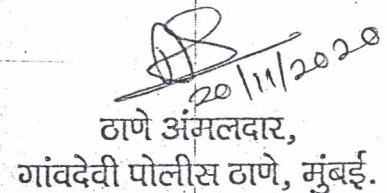 20/11/2020
ठाणे अंमलदार,
गांवदेवी पोलीस ठाणे, मुंबई.